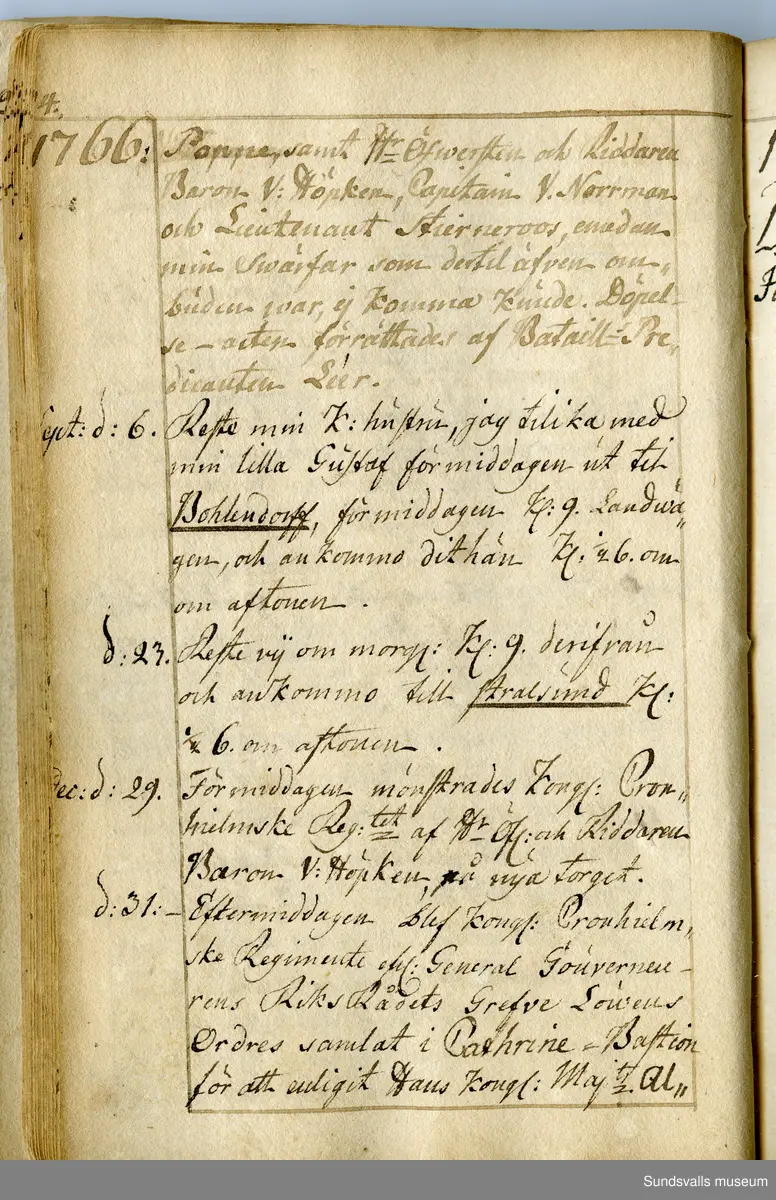 4.
1766: Poppe, samt Hr Öfwersten och Riddaren
Baron V: Höpken, Capitain V. Norrman
och Lieutenant Stierneroos, emedan
min Swärfar som dertil äfven om„
buden war, ej komma kunde. Döpel-
se-acten förrättades af Bataill= Pre„
dicanten Léer.
Sept: d: 6. Reste min K: hustru, jag tilika med
min lilla Gustaf förmiddagen ut til
Bohlendorff, förmiddagen Kl: 9. Landwä„
gen, och ankommo dithän Kl: ½ 6. om
om aftonen .
d: 23. Reste vij om morg: Kl: 9. derifrån
och ankommo till Stralsund Kl:
½ 6. om aftonen .
Dec: d: 29. Förmiddagen mönstrades Kongl: Cron„
hielmske Reg:tet af Hr Öfl: och Riddaren
Baron V: Höpken, på nya torget.
d: 31:- Eftermiddagen blef Kongl: Cronhielm„
ske Regimente efl: General Gouverneu-
rens Riks Rådets Grefve Löwens
Ordres samlat i Cathrine-Bastion
för att enligit Hans Kongl: Maj:tz Al„
Sundsvalls museum